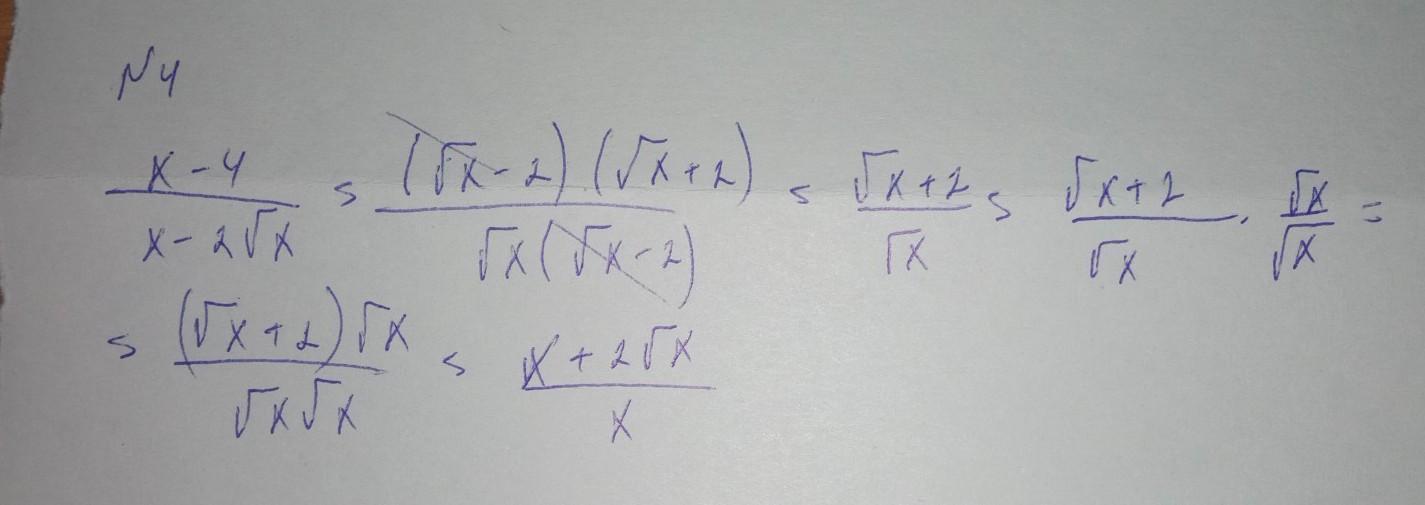 N4
x-4/x-2√x = (√x-2)(√x+2)/√x(√x-2) = √x+2/√x = √x+2/√x · √x/√x =
= (√x+2)√x/√x√x = x+2√x/x